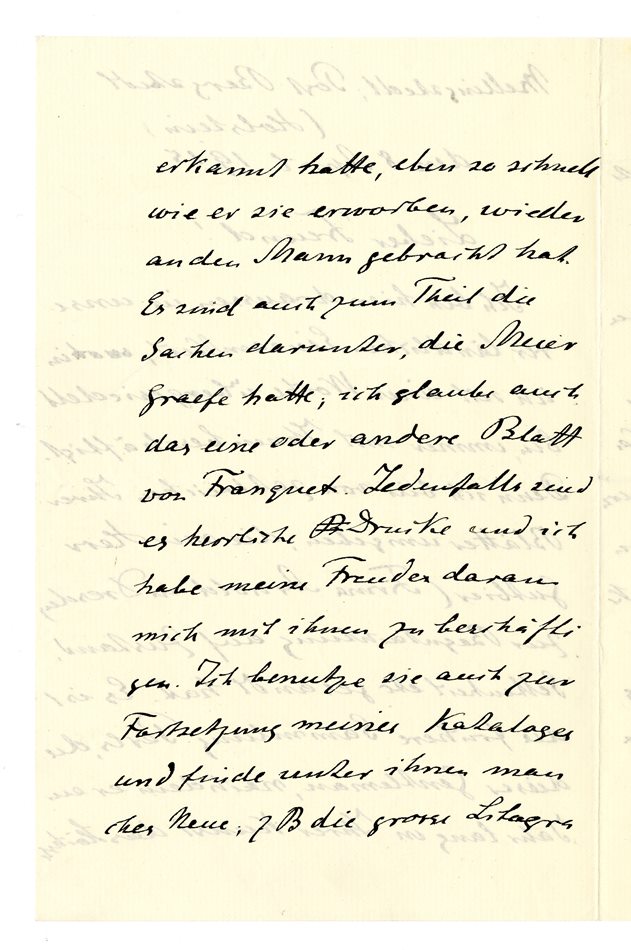 erkannt hatte, eben so schnell
wie er sie erworben, wieder
an den Mann gebracht hat.
Es sind auch zum Theil die
Sachen darunter, die Meier
Graefe hatte; ich glaube auch
das eine oder andere Blatt
von Franquet. Jedenfalls sind
es herrliche Drucke und ich
habe meine Freude daran
mich mit ihnen zu beschäfti
gen. Ich benutze sie auch zur
Fortsetzung meines Kataloges
und finde unter ihnen man
ches Neue, z B die grosse Litogra